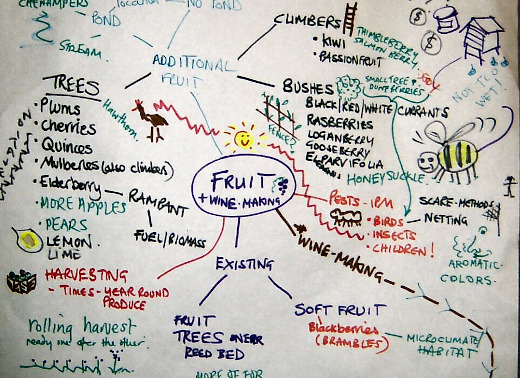 LOCATION
NO POND
POND
STREAM.
ADDITIONAL
FRUIT
CLIMBERS
• KIWI
• PASSIONFRUIT
THIMBLEBERRY
SALMON BERRY.
BUSHES
SMALL TREE &
BLACK/RED/WHITE/CURRANTS
RASBERRIES
LOGANBERRY
GOOSEBERRY
HONEYSUCKLE.
NOT TOO
WET!
FENCES
TREES
• Plums
• Cherries
• Quinces
• Mulberries (also climbers)
• Elderberry
• MORE APPLES
• PEARS
LEMON
LIME
Hawthorn.
RAMPANT
FUEL/BIOMASS
FRUIT
+ WINE-MAKING
PESTS - IPM
• BIRDS
• INSECTS
• CHILDREN!
SCARE-METHODS
NETTING
AROMATIC
COLORS
WINE-MAKING
HARVESTING
- TIMES - YEAR ROUND
PRODUCE
rolling harvest
ready one after the other.
EXISTING
FRUIT
TREES NEAR
REED BED
SOFT FRUIT
Blackberries
(BRAMBLES)
MICROCLIMATE
HABITAT
MORE OF FOR